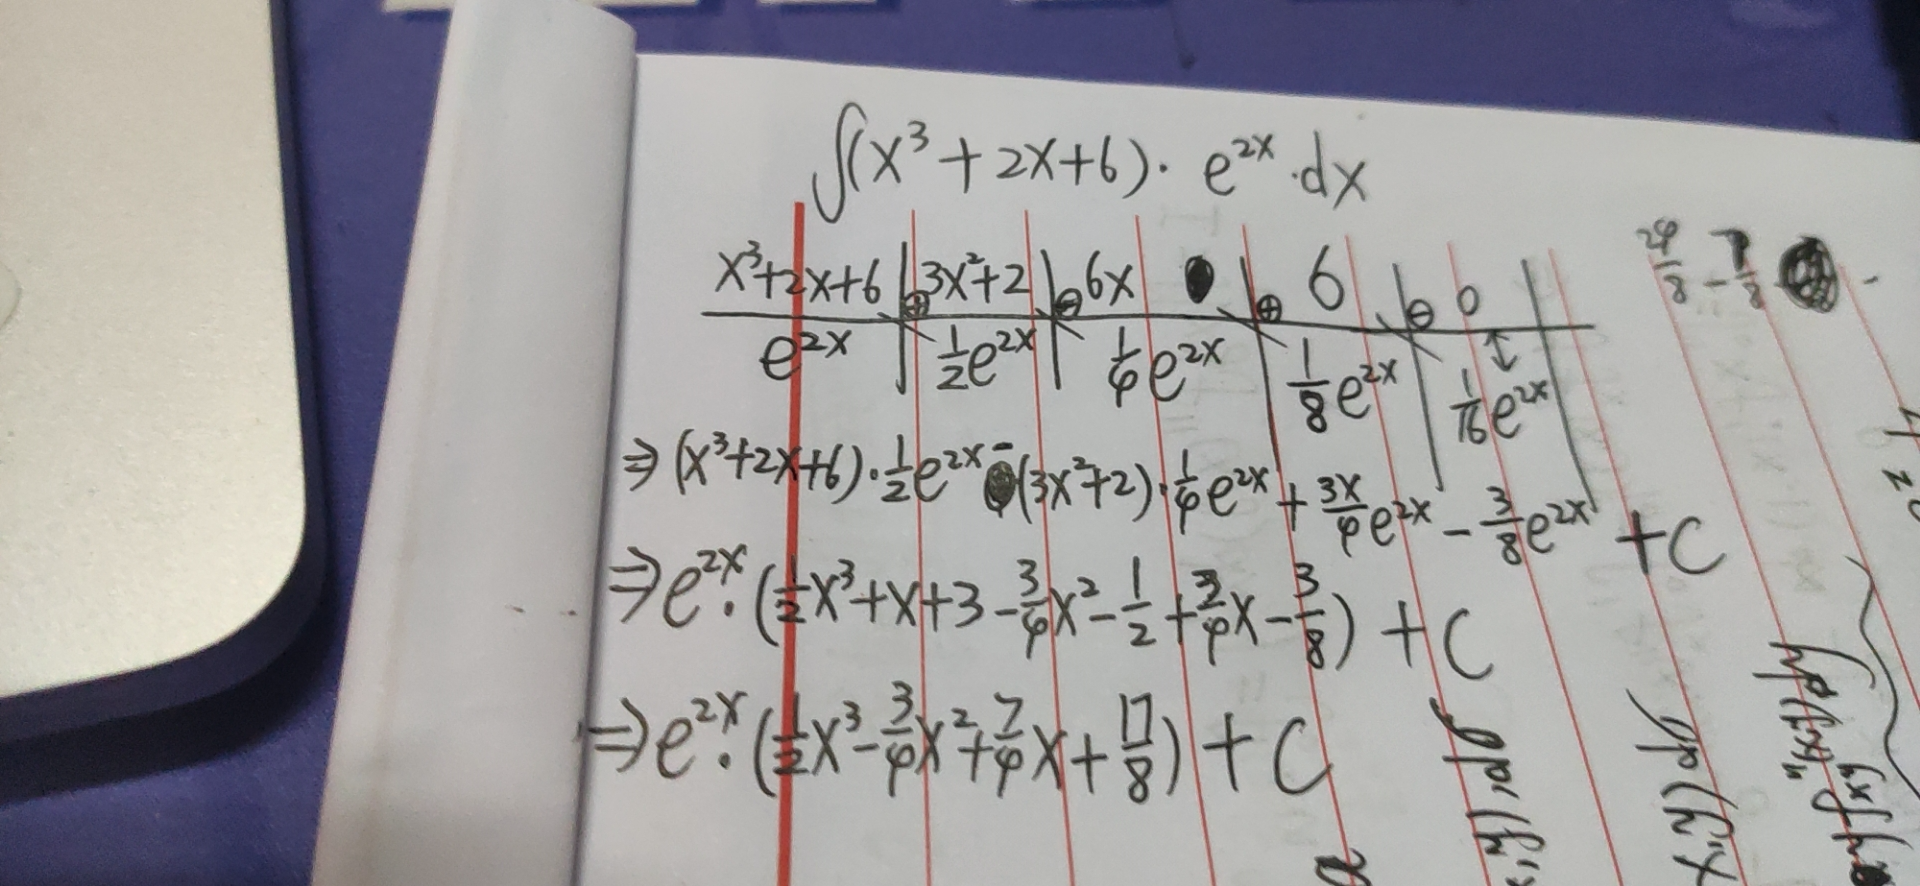 ∫(x³+2x+6)·e²ˣ·dx
x³+2x+6 | ⊕ 3x²+2 | ⊖ 6x | ⊕ 6 | ⊖ 0
e²ˣ | 1/2 e²ˣ | 1/4 e²ˣ | 1/8 e²ˣ | 1/16 e²ˣ
⇒(x³+2x+6)·1/2 e²ˣ-(3x²+2)·1/4 e²ˣ+3x/4 e²ˣ-3/8 e²ˣ+C
⇒e²ˣ·(1/2 x³+x+3-3/4 x²-1/2+3/4 x-3/8)+C
⇒e²ˣ·(1/2 x³-3/4 x²+7/4 x+17/8)+C
24/8-7/8